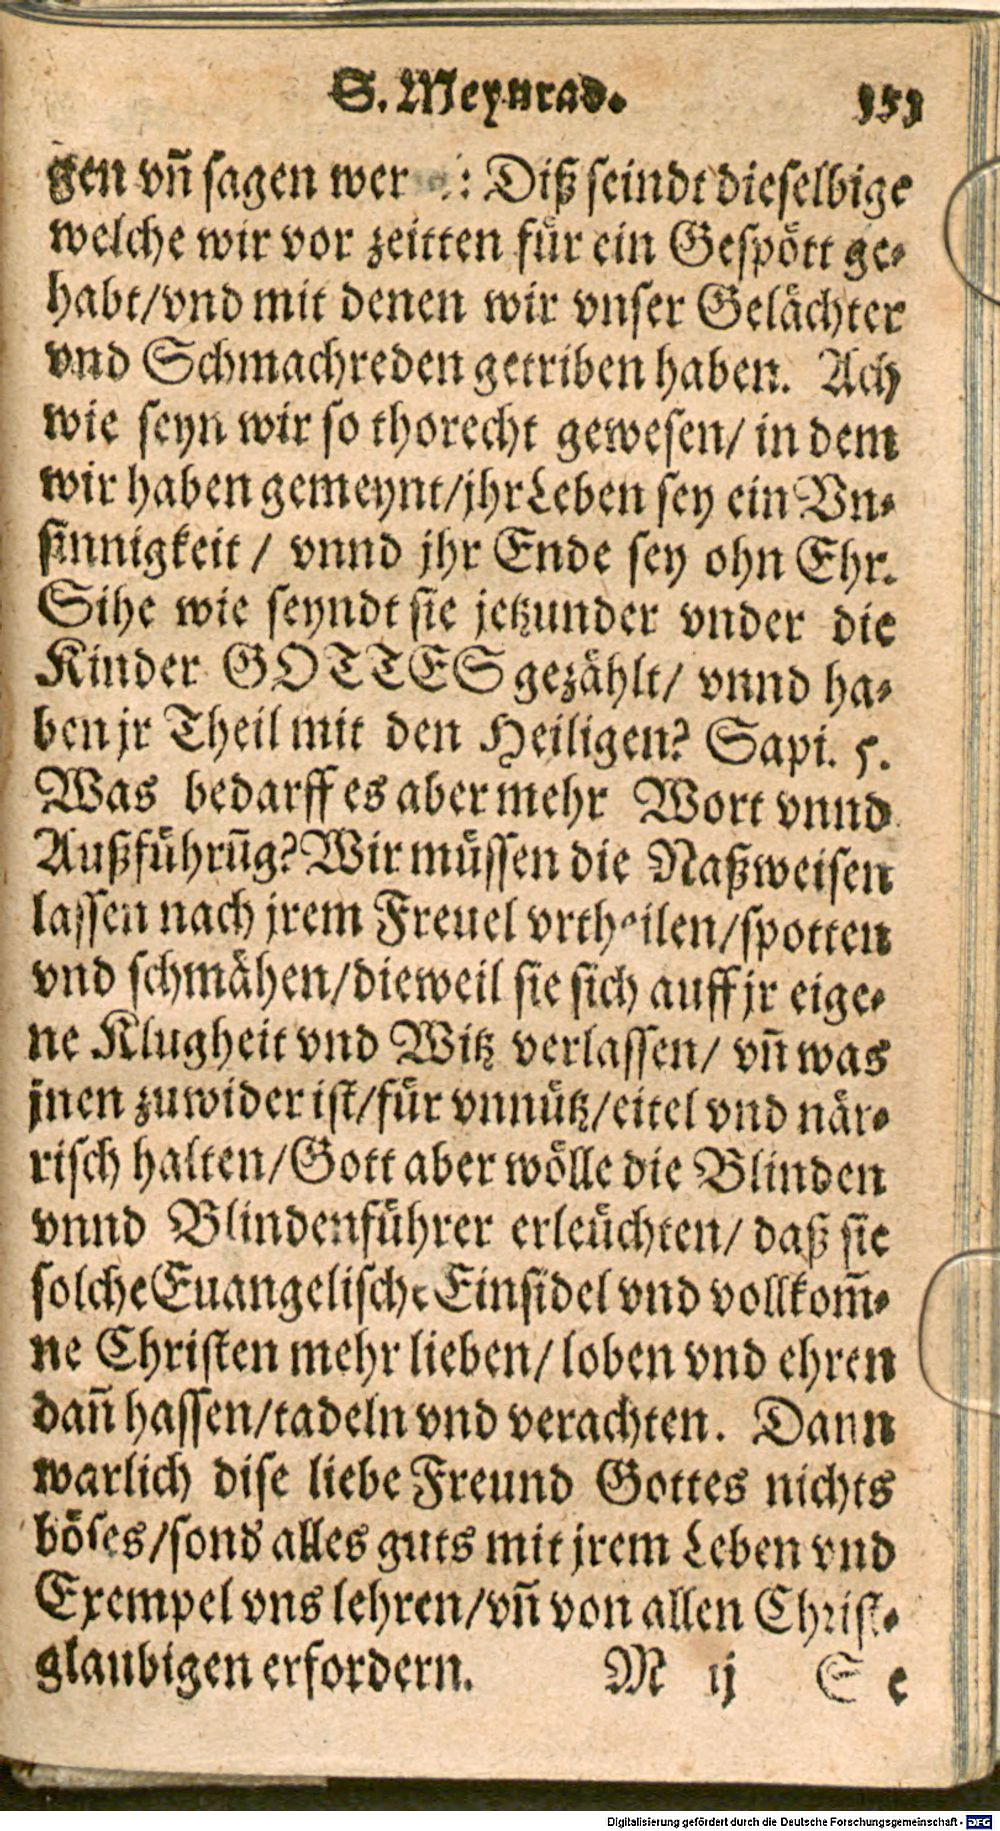 S. Meynrad. 353
gen vñ sagen wer : Diß seindt dieselbige
welche wir vor zeitten für ein Gespött ge-
habt/vnd mit denen wir vnser Gelächter
vnd Schmachreden getriben haben. Ach
wie seyn wir so thorecht gewesen/ in dem
wir haben gemeynt/jhr Leben sey ein Vn-
sinnigkeit / vnnd jhr Ende sey ohn Ehr.
Sihe wie seyndt sie jetzunder vnder die
Kinder GOTTES gezählt/ vnnd ha-
ben jr Theil mit den Heiligen? Sapi. 5.
Was bedarff es aber mehr Wort vnnd
Außführũg? Wir müssen die Naßweisen
lassen nach jrem Freuel vrtheilen/spotten
vnd schmähen/dieweil sie sich auff jr eige-
ne Klugheit vnd Witz verlassen/ vñ was
jnen zuwider ist/für vnnütz/eitel vnd när-
risch halten/Gott aber wölle die Blinden
vnnd Blindenführer erleüchten/ daß sie
solche Euangelische Einsidel vnd vollkom̃-
ne Christen mehr lieben/ loben vnd ehren
dañ hassen/tadeln vnd verachten. Dann
warlich dise liebe Freund Gottes nichts
böses/sond alles guts mit jrem Leben vnd
Exempel vns lehren/vñ von allen Christ-
glaubigen erfordern. M ij Se
Digitalisierung gefördert durch die Deutsche Forschungsgemeinschaft - DFG